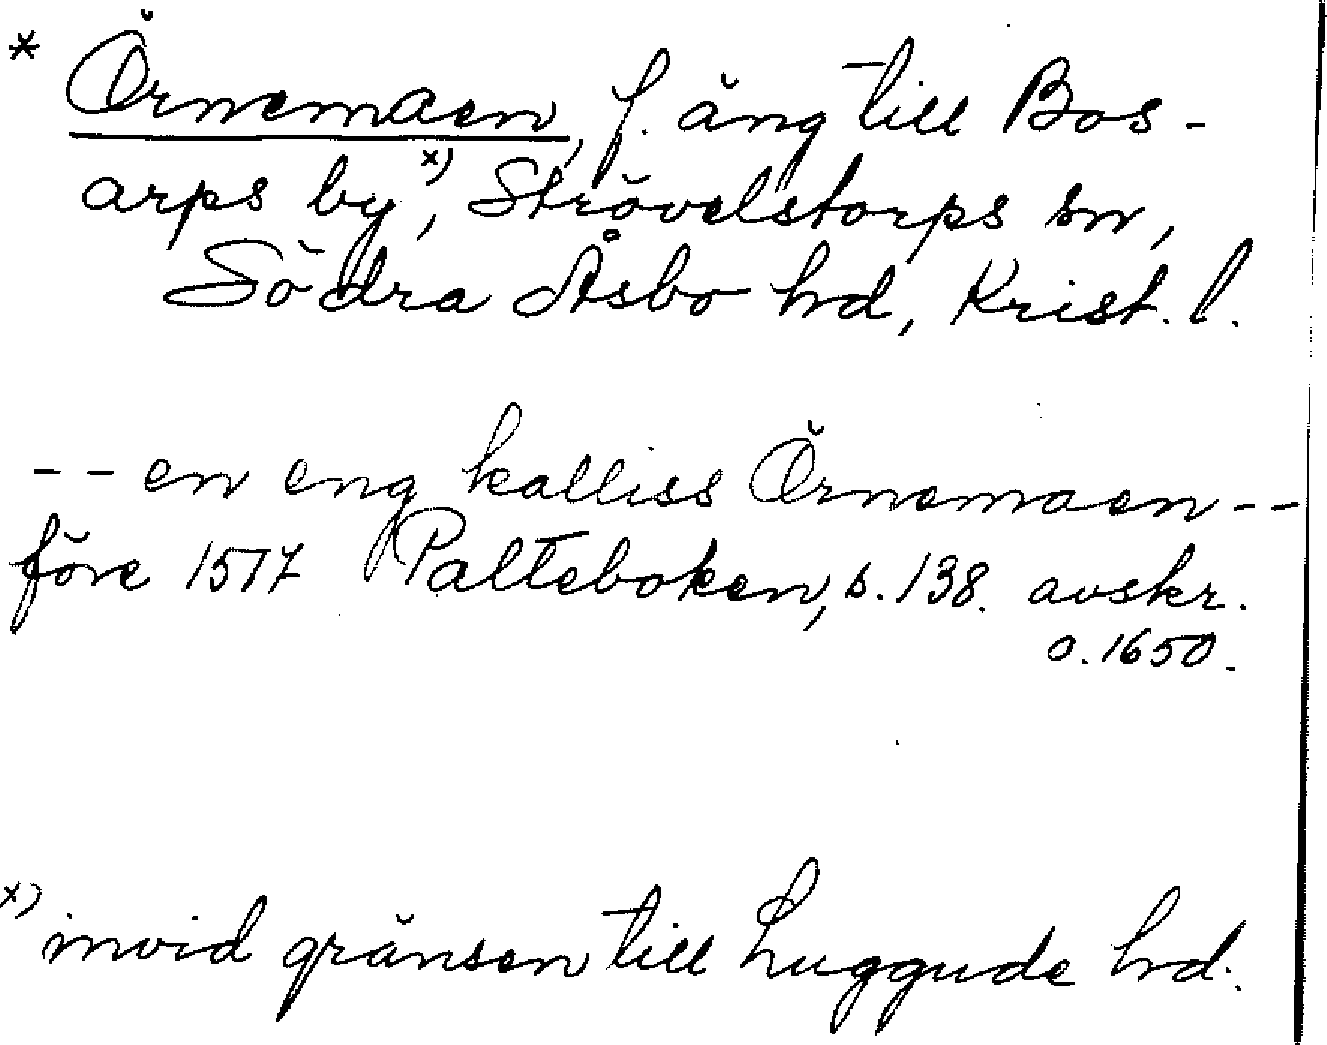 * Örnemaen, f. äng till Bos-
arps by x), Strövelstorps sn,
Södra Åsbo hd, Krist. l.
-- en eng kalliss Örnemaen --
före 1517 Palteboken, s. 138. avskr.
o. 1650.
x) invid gränsen till Luggude hd.